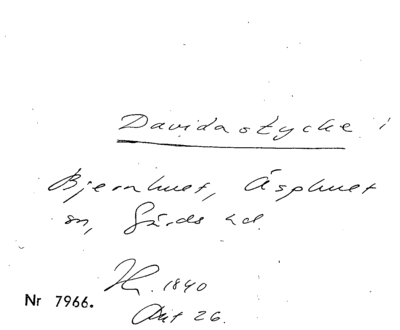 Davidastycke i
Bjernhuet, Äsphuet
sn, Gärds hd.
Hk. 1840
Akt 26.
Nr 7966.